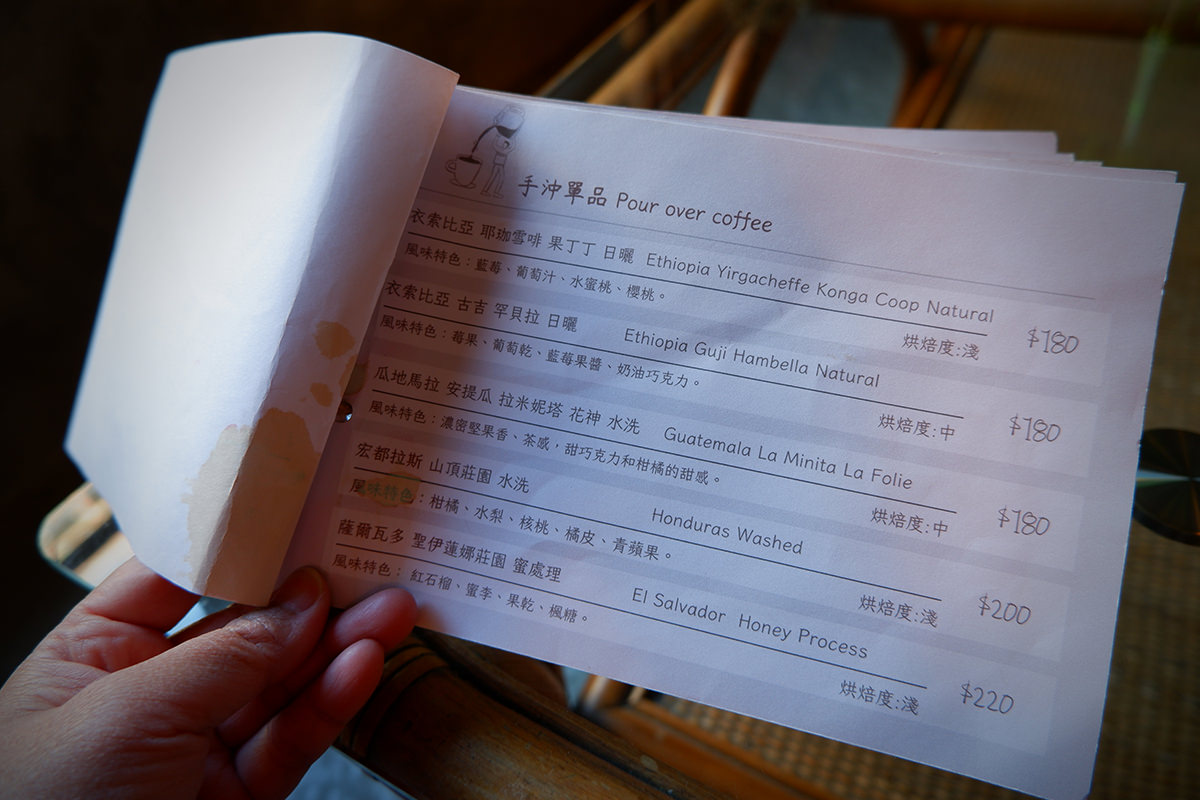 手沖單品 Pour over coffee
衣索比亞 耶珈雪啡 果丁丁 日曬 Ethiopia Yirgacheffe Konga Coop Natural
風味特色：藍莓、葡萄汁、水蜜桃、櫻桃。 烘焙度:淺 $180
衣索比亞 古吉 罕貝拉 日曬 Ethiopia Guji Hambella Natural
風味特色：莓果、葡萄乾、藍莓果醬、奶油巧克力。 烘焙度:中 $180
瓜地馬拉 安提瓜 拉米妮塔 花神 水洗 Guatemala La Minita La Folie
風味特色：濃密堅果香、茶感，甜巧克力和柑橘的甜感。 烘焙度:中 $180
宏都拉斯 山頂莊園 水洗 Honduras Washed
風味特色：柑橘、水梨、核桃、橘皮、青蘋果。 烘焙度:淺 $200
薩爾瓦多 聖伊蓮娜莊園 蜜處理 El Salvador Honey Process
風味特色： 紅石榴、蜜李、果乾、楓糖。 烘焙度:淺 $220